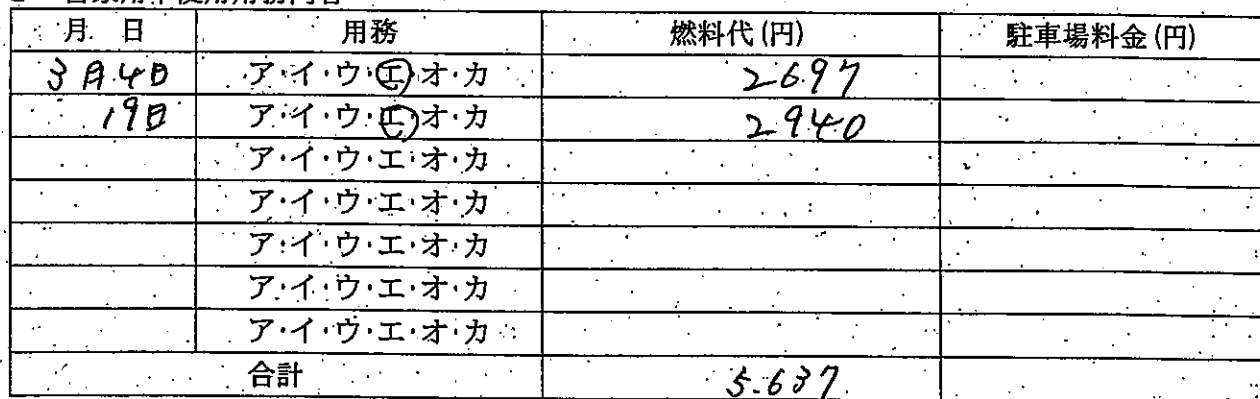 月 日 用務 燃料代(円) 駐車場料金(円)
3月4日 ア・イ・ウ・エ・オ・カ 2697
19日 ア・イ・ウ・エ・オ・カ 2940
ア・イ・ウ・エ・オ・カ
ア・イ・ウ・エ・オ・カ
ア・イ・ウ・エ・オ・カ
ア・イ・ウ・エ・オ・カ
ア・イ・ウ・エ・オ・カ
合計 5.637